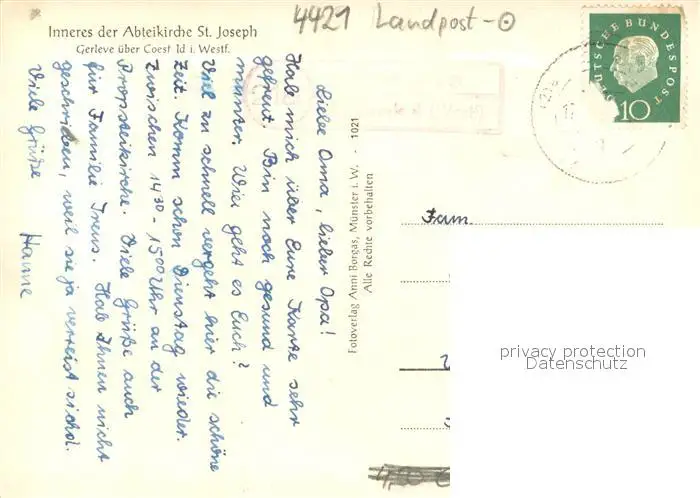 4421 Landpost-
Inneres der Abteikirche St. Joseph
Gerleve über Coest ld i. Westf.
Liebe Oma, lieber Opa!
Hab mich über Eure Karte sehr
gefreut. Bin noch gesund und
munter. Wie geht es Euch?
Viel zu schnell vergeht hier die schöne
Zeit. Komm schon Dienstag wieder.
Zwischen 1430- 1500 Uhr an der
Propsteikirche. Viele Grüße auch
für Familie Hab Ihnen nicht
geschrieben, weil sie ja verreist sind.
Viele Grüße
Hanne
Fotoverlag Anni Borgas, Münster i. W. - 1021
Alle Rechte vorbehalten
DEUTSCHE BUNDESPOST
10
Fam.
privacy protection
Datenschutz